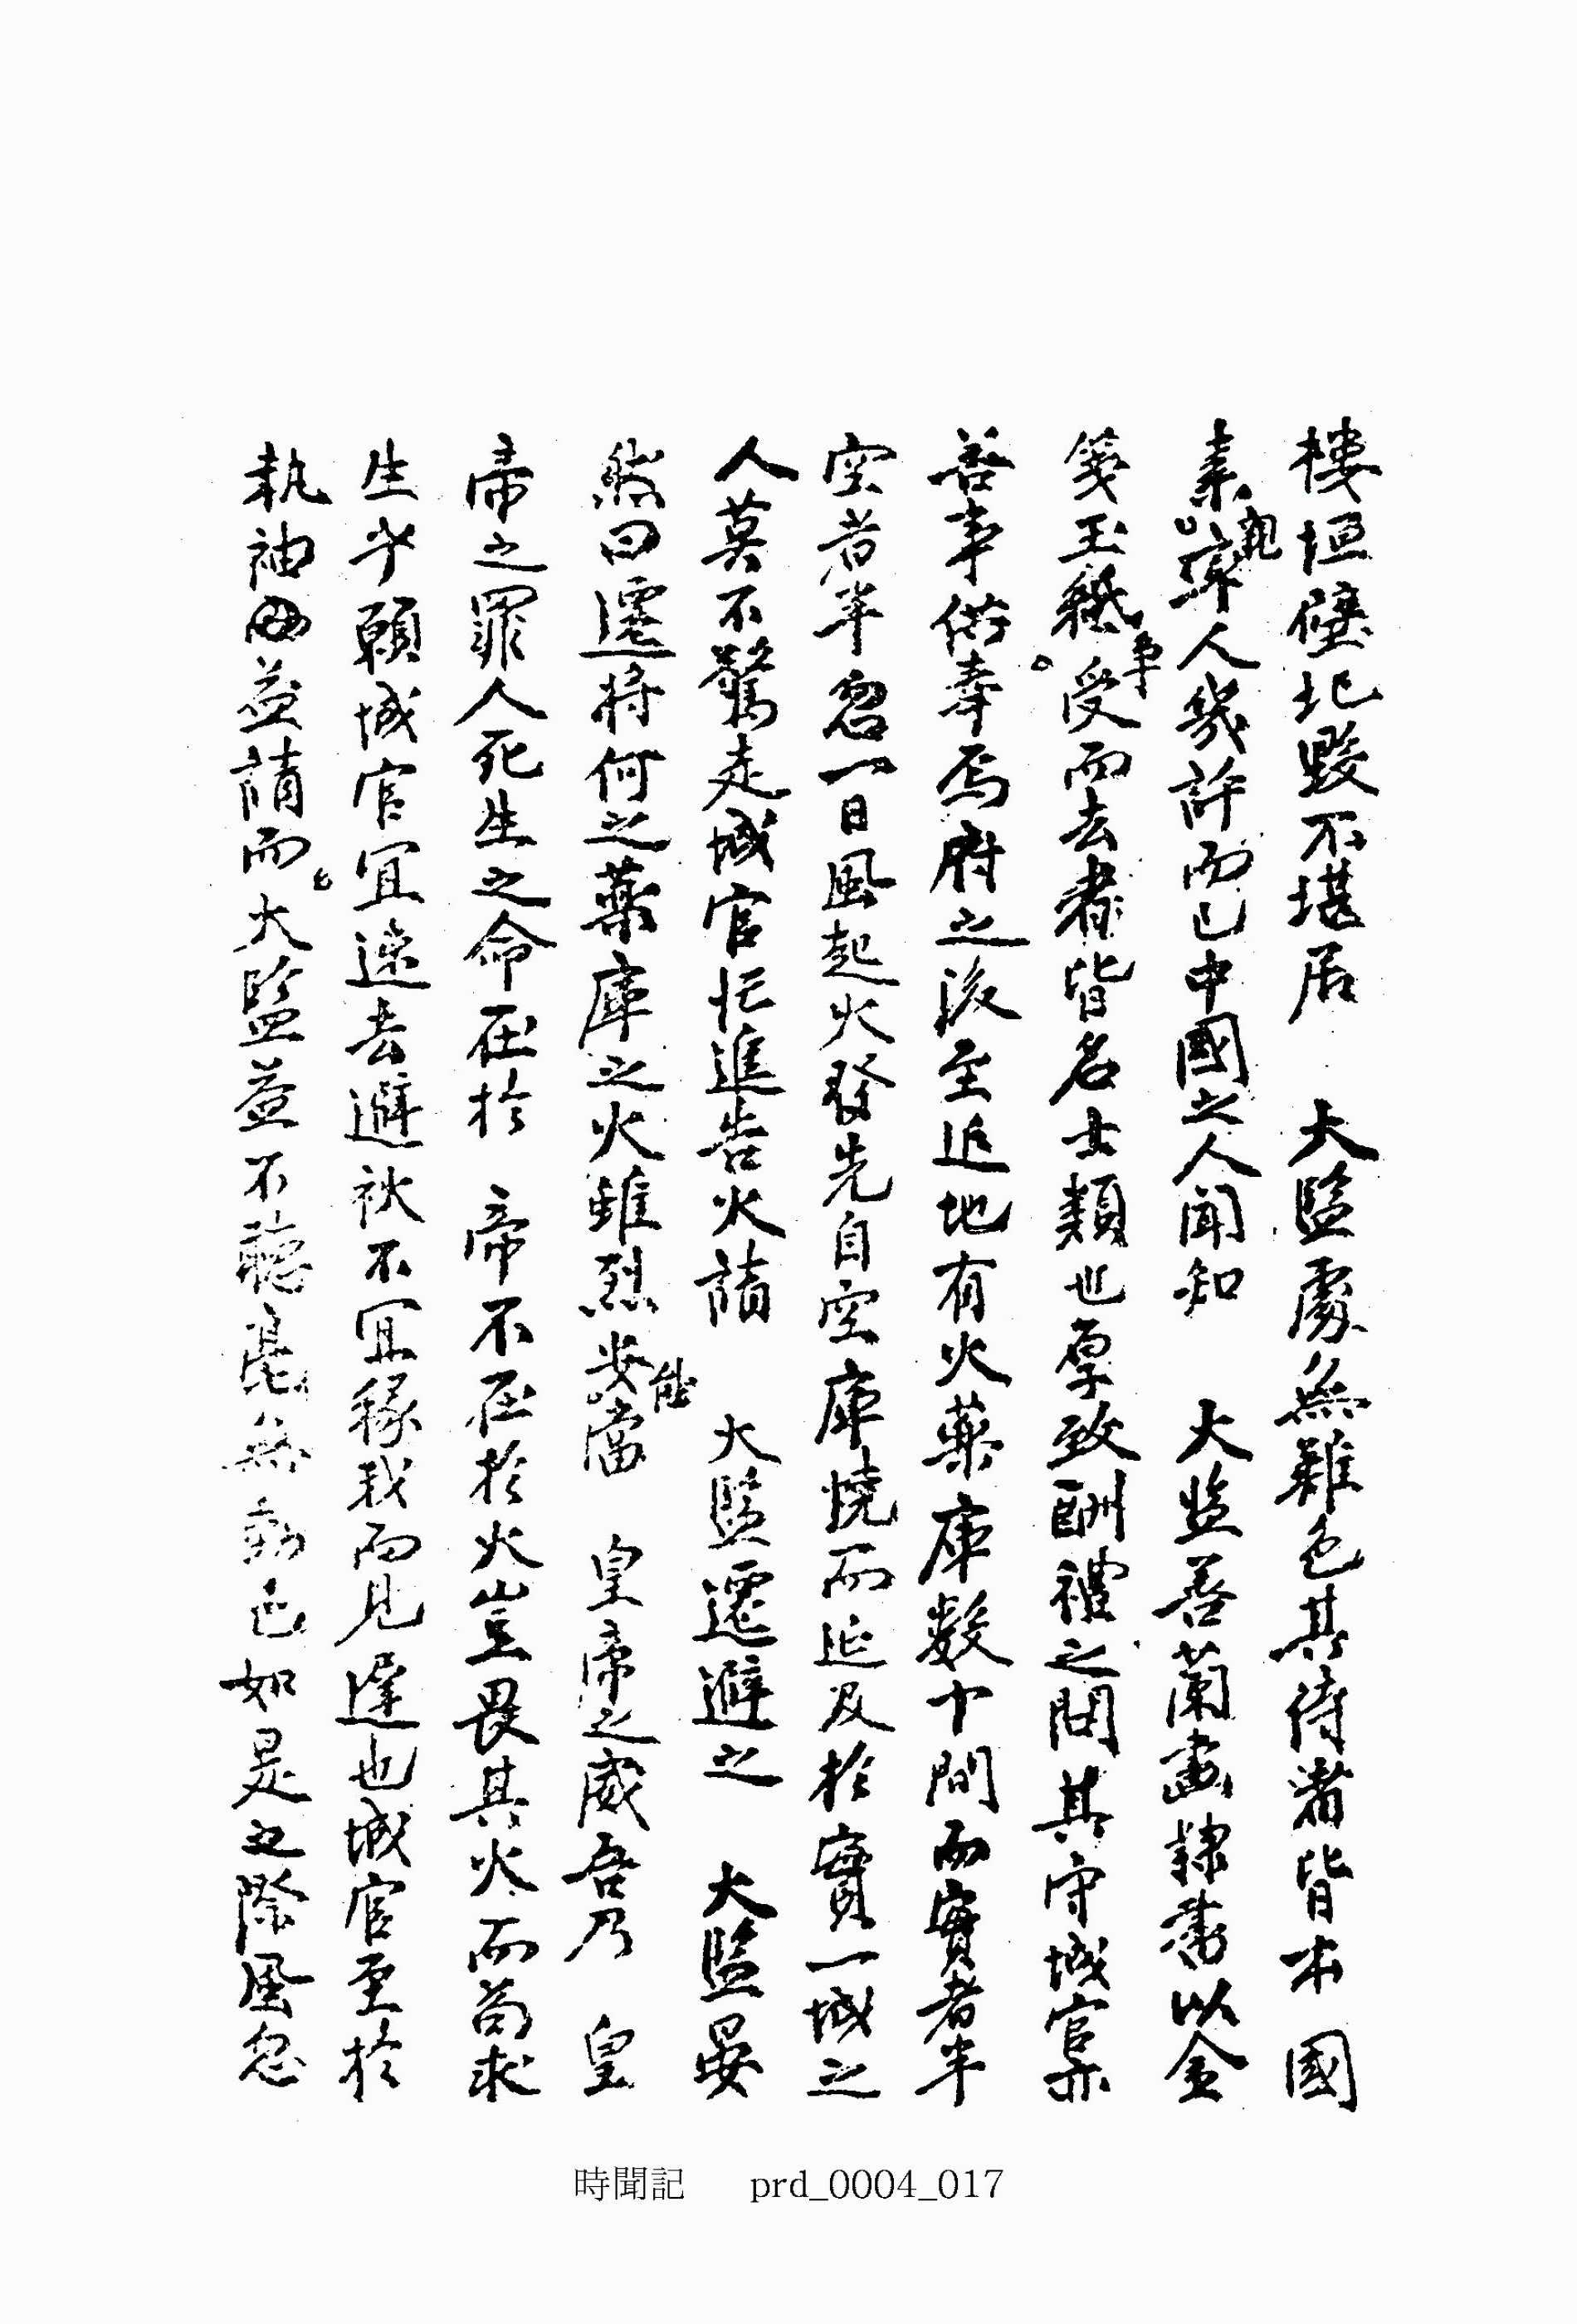 樓垣壁圮毀不堪居　大監處無難色其侍者皆本國
素親率人幾許而已中國之人聞知　大监善蘭畫隸書以金
箋玉紙爭受而去者皆名士類也厚致酬禮之間其守城官渠
善事供奉焉府之後至近地有火藥庫數十間而實者半
空者半忽一日風起火發先自空庫燒而延及於實一城之
人莫不驚走城官忙進告火請　大監遷避之　大監晏
然曰遷將何之藥庫之火雖烈安能當　皇帝之威吾乃　皇
帝之罪人死生之命在於　帝不在於火豈畏其火而苟求
生乎願城官宜速去避袄不宜緣我而見遲也城官至於
執袖而益請而大監益不聽毫無動色如是之際風忽
時聞記　prd_0004_017